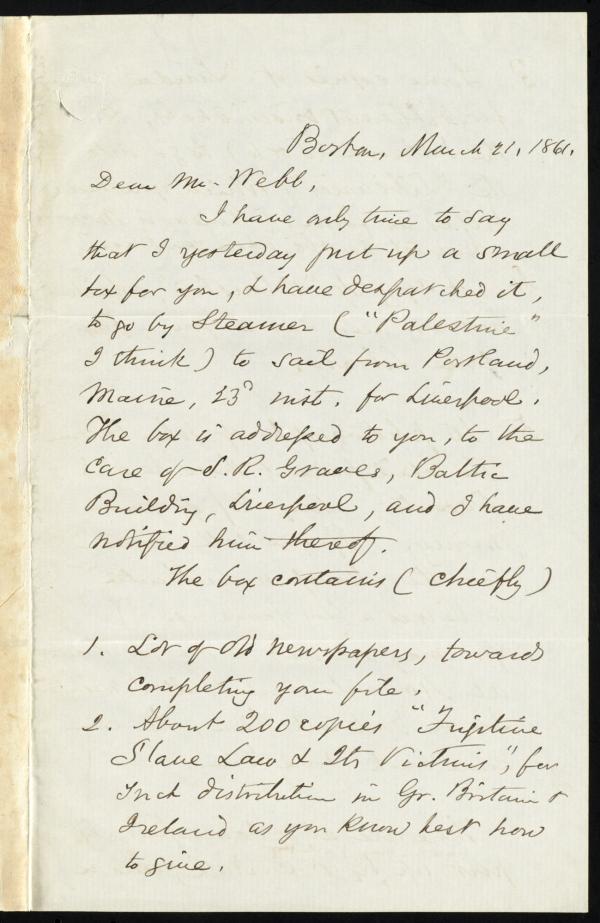 Boston, March 21, 1861.
Dear Mr. Webb,
I have only time to say
that I yesterday put up a small
box for you, & have despatched it,
to go by Steamer ("Palestine"
I think) to sail from Portland,
Maine, 23d inst. for Liverpool.
The box is addressed to you, to the
care of S. R. Graves, Baltic
Building, Liverpool, and I have
notified him thereof.
The box contains (chiefly)
1. Lot of old newspapers, towards
completing your file.
2. About 200 copies "Fugitive
Slave Law & Its Victims", for
such distribution in Gr. Britain &
Ireland as you know best how
to give.